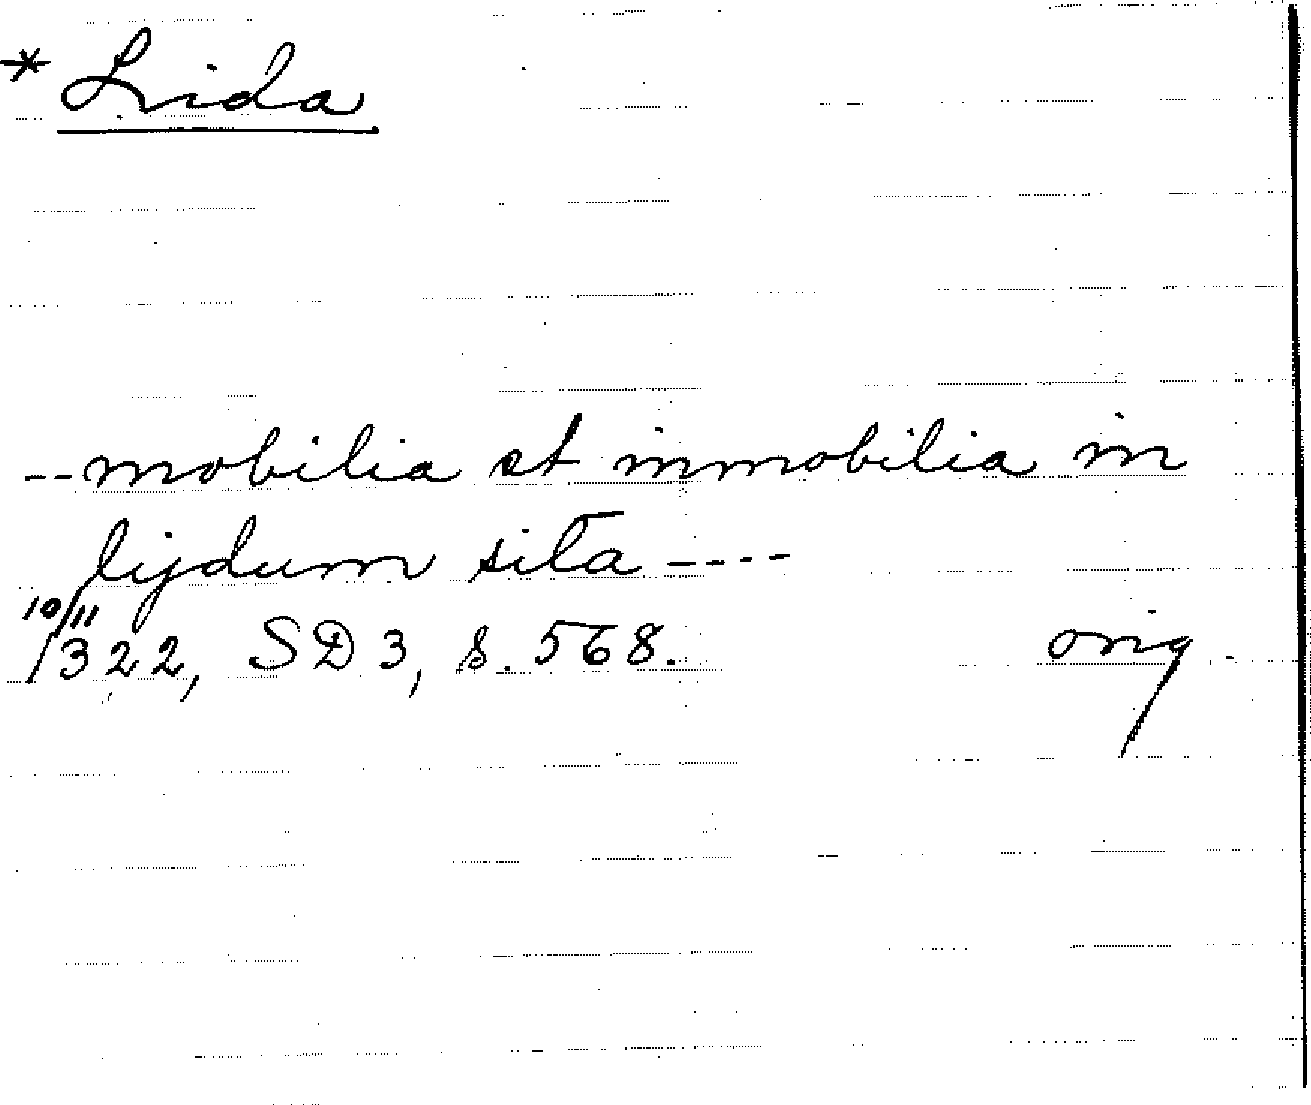 * Lida
--mobilia et immobilia in
lijdum sita----
10/11
1322, SD3, s. 568. orig.